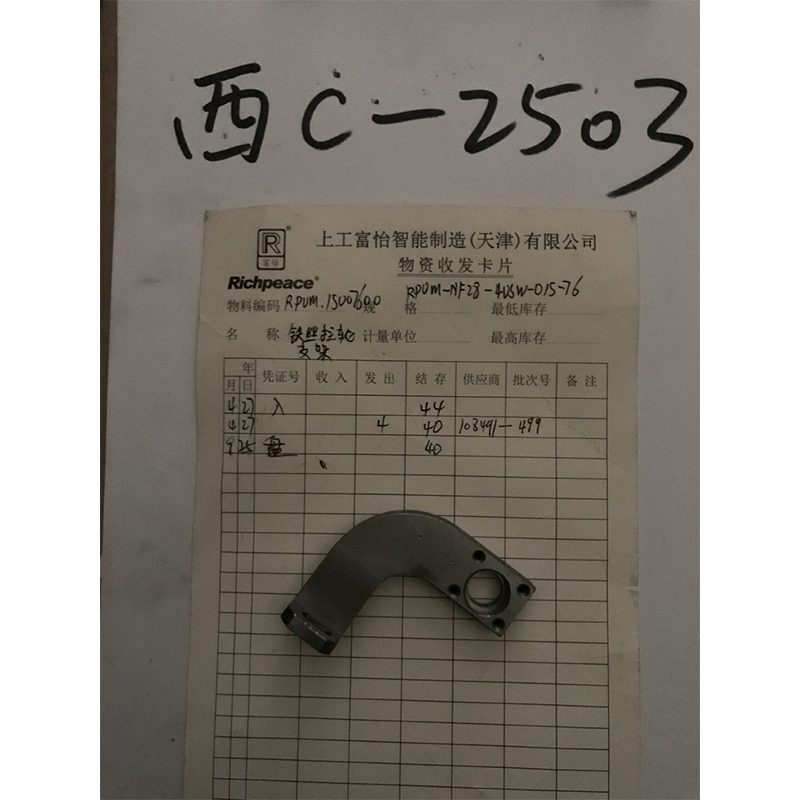 西C-2503
R
富怡
Richpeace®
上工富怡智能制造(天津)有限公司
物资收发卡片
物料编码 RPUM.15007600 规格 RPUM-NF28-4USW-015-76 最低库存
名称 铁丝拉轮支架 计量单位 最高库存
年
月 日 凭证号 收入 发出 结存 供应商 批次号 备注
4 27 入 44
4 27 4 40 103491-499
9 25 盘 40